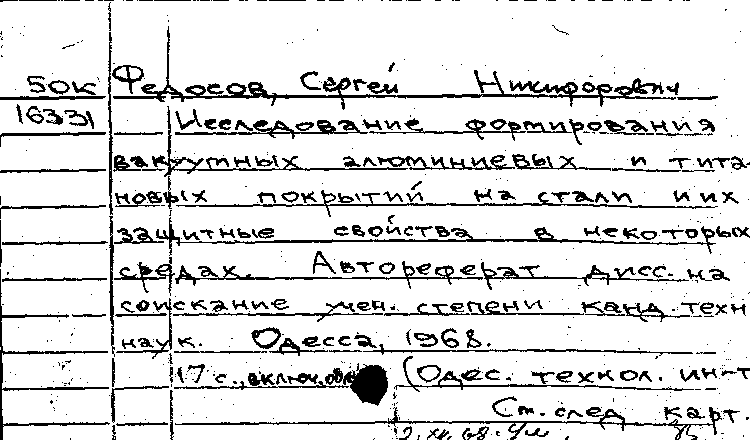 50К Федосов, Сергей Никифорович
16331 Исследование формирования
вакуумных алюминиевых и тита-
новых покрытий на стали и их
защитные свойства в некоторых
средах. Автореферат дисс. на
соискание учен. степени канд. техн
наук. Одесса, 1968.
17 с., включ. обл (Одес. технол. ин-т
См. след карт.